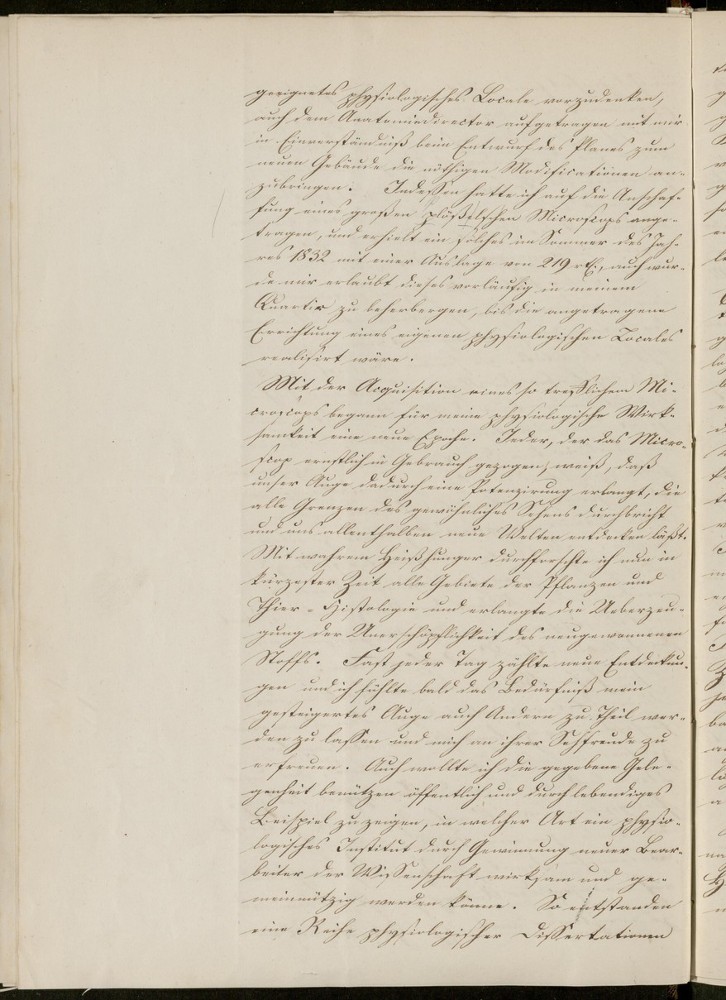 geeignetes physiologisches Locale vorzudenken,
auch dem Anatomiedirector aufgetragen mit mir
in Einverständniß beim Entwurf des Planes zum
neuen Gebäude die nöthigen Modificationen an-
zubringen. Indessen hatte ich auf die Anschaf-
fung eines großen plößelschen Microscops ange-
tragen, und erhielt ein solches im Sommer des Jah-
res 1832 mit einer Auslage von 219 rtl., auch wur-
de mir erlaubt dieses vorläufig in meinem
Quartir zu beherbergen, bis die angetragene
Errichtung eines eigenen physiologischen Locales
realisirt wäre.
Mit der Acquisition eines so trefflichen Mi-
croscops begann für meine physiologische Wirk-
samkeit eine neue Epoche. Jeder, der das Micro-
scop ernstlich in Gebrauch gezogen, weiß, daß
unser Auge dadurch eine Potenzirung erlangt, die
alle Grenzen des gewöhnlichen Sehens durchbricht
und uns allenthalben neue Welten entdecken läßt.
Mit wahrem Heißhunger durchforschte ich nun in
kürzester Zeit alle Gebiete der Pflanzen und
Thier-Histologie und erlangte die Ueberzeu-
gung der Unerschöpflichkeit des neugewonnenen
Stoffs. Fast jeder Tag zählte neue Entdeckun-
gen und ich fühlte bald das Bedürfniß mein
gesteigertes Auge auch Andern zu Theil wer-
den zu lassen und mich an ihrer Sehfreude zu
erfreuen. Auch wollte ich die gegebene Gele-
genheit benützen öffentlich und durch lebendiges
Beispiel zu zeigen, in welcher Art ein physio-
logisches Institut durch Gewinnung neuer Bear-
beiter der Wissenschaft wirksam und ge-
meinnützig werden könne. So entstanden
eine Reihe physiologischer Dissertationen